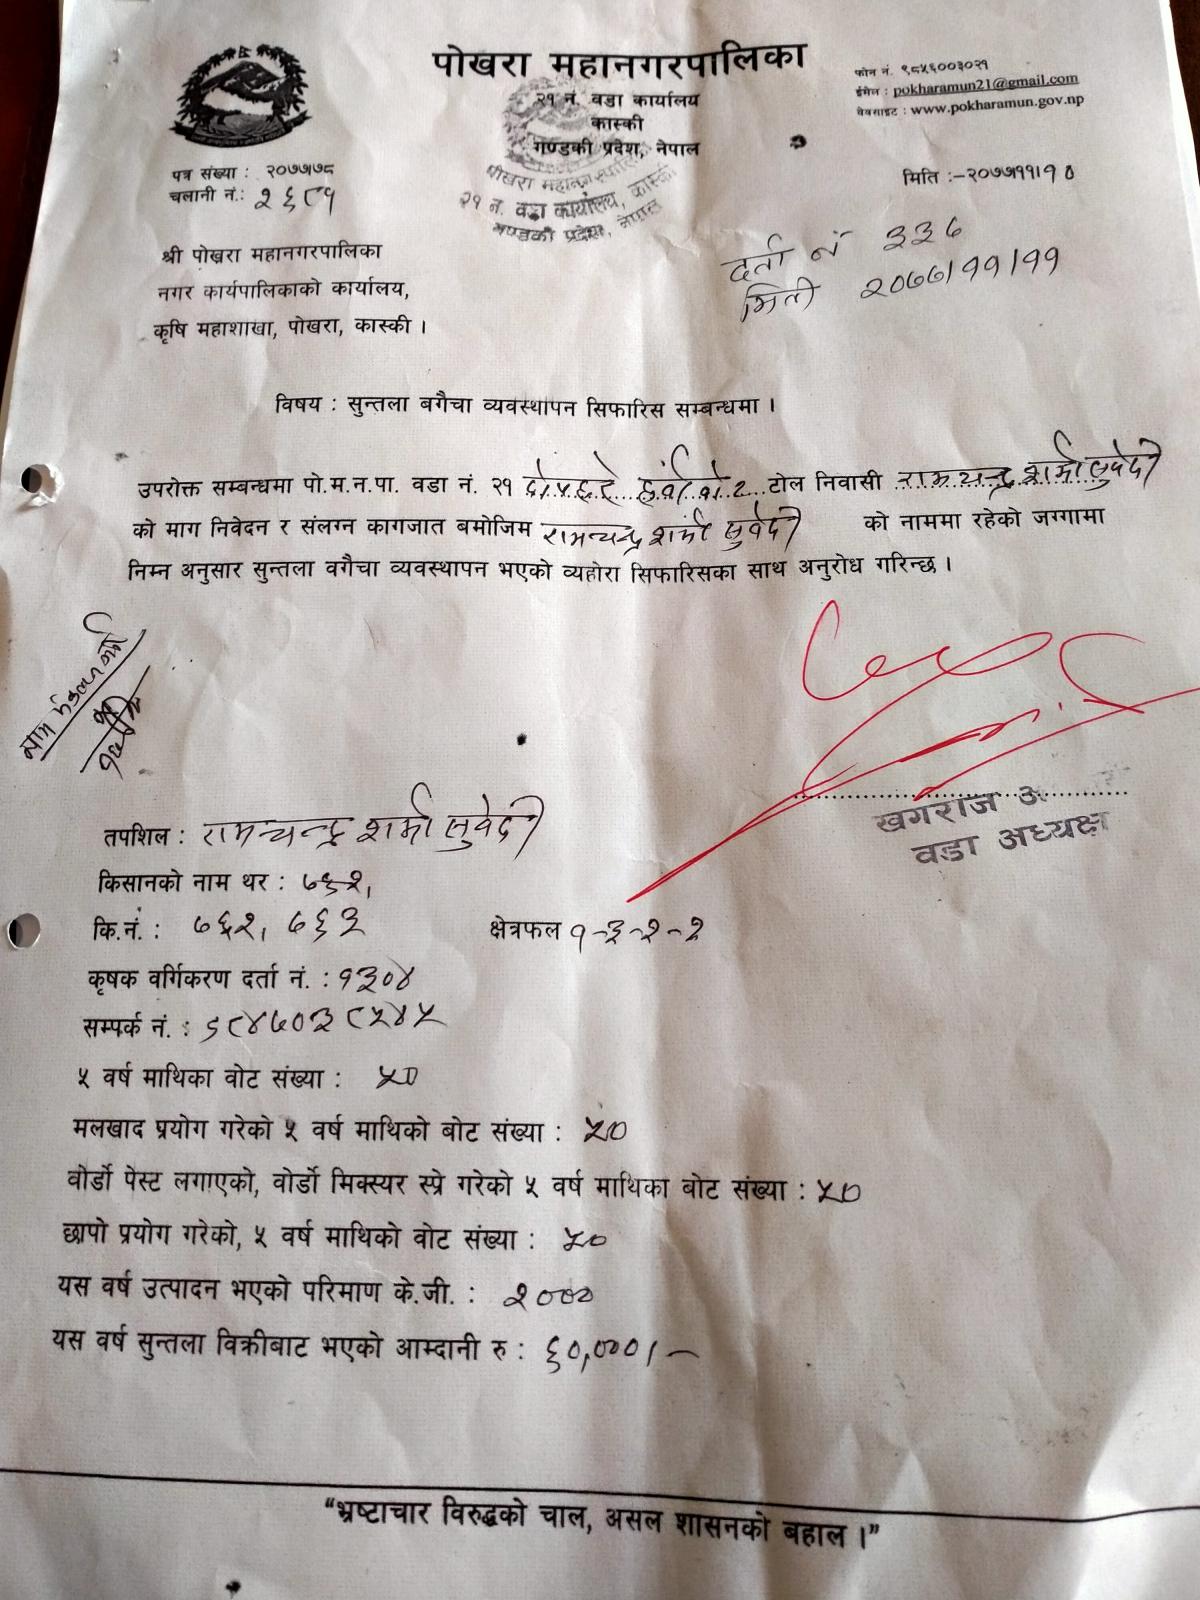 पोखरा महानगरपालिका
२१ नं. वडा कार्यालय
कास्की
गण्डकी प्रदेश, नेपाल
फोन नं. ९८५६००३०२१
ईमेल : pokharamun21@gmail.com
वेवसाइट : www.pokharamun.gov.np
पोखरा महानगरपालिका
२१ नं. वडा कार्यालय, कास्की
गण्डकी प्रदेश, नेपाल
पत्र संख्या : २०७७।७८
चलानी नं.: २६८१
मिति :-२०७७।११।१०
दर्ता नं ३३७
मिती २०७७।११।११
श्री पोखरा महानगरपालिका
नगर कार्यपालिकाको कार्यालय,
कृषि महाशाखा, पोखरा, कास्की ।
विषय : सुन्तला बगैचा व्यवस्थापन सिफारिस सम्बन्धमा ।
उपरोक्त सम्बन्धमा पो.म.न.पा. वडा नं. २१ टोल निवासी रामचन्द्र शर्मा सुवेदी
को माग निवेदन र संलग्न कागजात बमोजिम रामचन्द्र शर्मा सुवेदी को नाममा रहेको जग्गामा
निम्न अनुसार सुन्तला वगैचा व्यवस्थापन भएको व्यहोरा सिफारिसका साथ अनुरोध गरिन्छ ।
खगराज
वडा अध्यक्ष
तपशिल : रामचन्द्र शर्मा सुवेदी
किसानको नाम थर : ७६२,
कि.नं. : ७६२, ७६३ क्षेत्रफल १-३-२-२
कृषक वर्गिकरण दर्ता नं. : १३०४
सम्पर्क नं. : ९८४७०३८५४५
५ वर्ष माथिका वोट संख्या : ५०
मलखाद प्रयोग गरेको ५ वर्ष माथिको बोट संख्या : ५०
वोर्डो पेस्ट लगाएको, वोर्डो मिक्स्चर स्प्रे गरेको ५ वर्ष माथिका बोट संख्या : ५०
छापो प्रयोग गरेको, ५ वर्ष माथिको वोट संख्या : ५०
यस वर्ष उत्पादन भएको परिमाण के.जी. : २०००
यस वर्ष सुन्तला विक्रीबाट भएको आम्दानी रु : ६०,०००।-
“भ्रष्टाचार विरुद्धको चाल, असल शासनको बहाल ।”